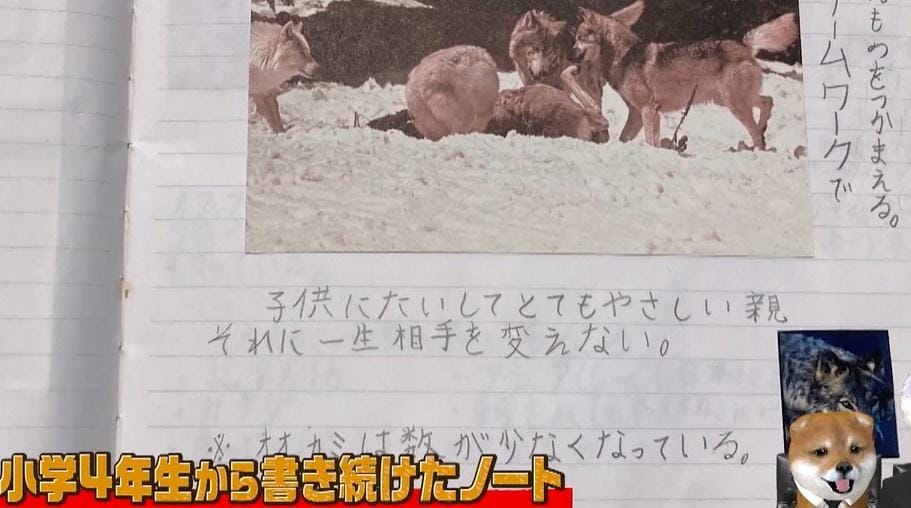 ームワークで
ものをつかまえる。
子供にたいしてとてもやさしい親
それに一生相手を変えない。
※オオカミは数が少なくなっている。
小学4年生から書き続けたノート